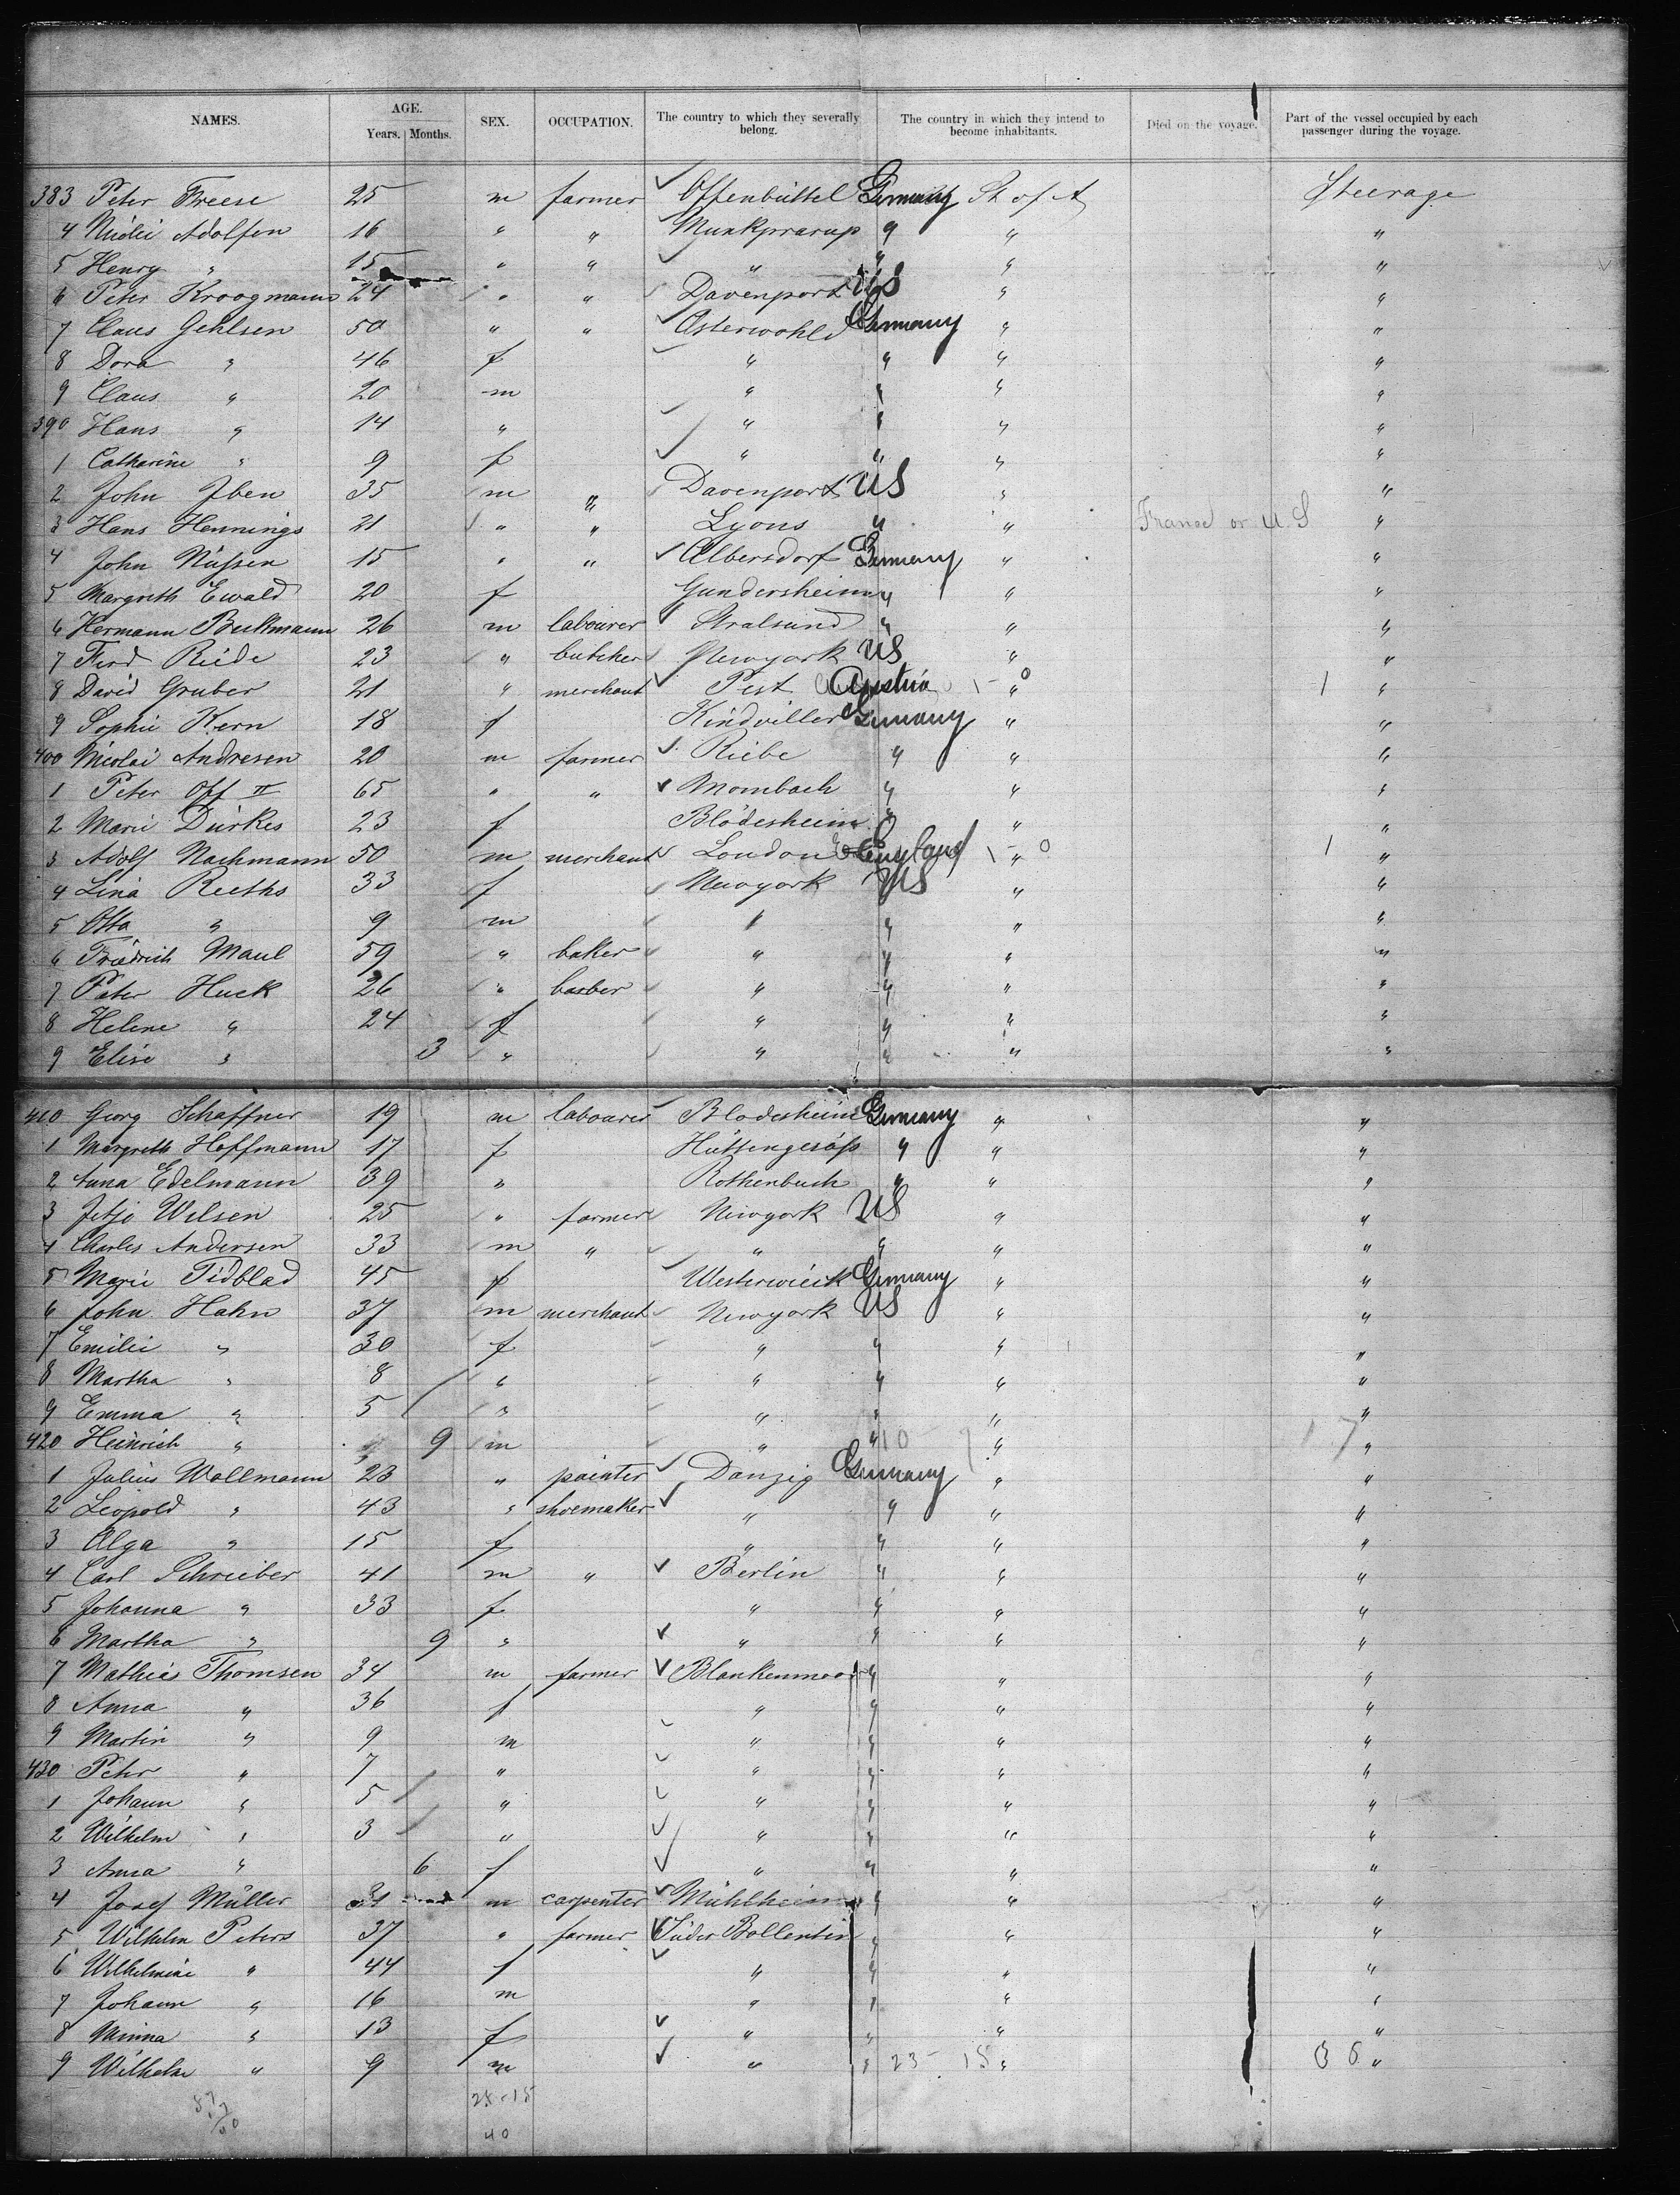 NAMES. AGE. SEX. OCCUPATION. The country to which they severally belong. The country in which they intend to become inhabitants. Died on the voyage. Part of the vessel occupied by each passenger during the voyage.
Years. Months.
383 Peter Freese 25 m farmer Offenbüttel Germany St of A Steerage
4 Adolfsen 16 " " Munkprarup " " "
5 Henry " 15 " " " " " "
6 Peter Kroogmann 24 " " Davenport US " "
7 Claus Gehlsen 50 " " Osterwohld Germany " "
8 Dora " 46 f " " " "
9 Claus " 20 m " " " "
390 Hans " 14 " " " " "
1 Catharine " 9 f " " " "
2 John Iben 35 m " Davenport US " "
3 Hans Hennings 21 " " Lyons " " France or U.S "
4 John Nüssen 15 " " Albersdorf Germany " "
5 Margreth Ewald 20 f Gundersheim " " "
6 Hermann Beckmann 26 m labourer Stralsund " " "
7 Ferd Riede 23 " butcher Newyork US " "
8 David Gruber 21 " merchant Pest Austria " 1 "
9 Sophie Kern 18 f Kindviller Germany " "
400 Nicolai Andresen 20 m farmer Riebe " " "
1 Peter Off II 65 " " Mombach " " "
2 Marie Dürkes 23 f Blödesheim " " "
3 Adolf Nachmann 50 m merchant London England " 1 "
4 Lina Rieths 33 f Newyork US " "
5 Otto " 9 m " " " "
6 Friedrich Maul 59 " baker " " " "
7 Peter Huck 26 " barber " " " "
8 Helene " 24 f " " " "
9 Elise " 3 " " " " "
410 Georg Schaffner 19 m labourer Blodesheim Germany " "
1 Margreth Hoffmann 17 f Hüttengesäss " " "
2 Anna Edelmann 39 " Rothenbuch " " "
3 Jetje Wilsen 25 " farmer Newyork US " "
4 Charles Andersen 33 m " " " " "
5 Marie Tidblad 45 f Westerwieck Germany " "
6 John Hahn 37 m merchant Newyork US " "
7 Emilie " 30 f " " " "
8 Martha " 8 " " " " "
9 Emma " 5 " " " " "
420 Heinrich " 9 m " " 10 " 17 "
1 Julius Wollmann 23 " painter Danzig Germany " "
2 Leopold " 43 " shoemaker " " " "
3 Olga " 15 f " " " "
4 Carl Schrieber 41 m " Berlin " " "
5 Johanna " 33 f " " " "
6 Martha " 9 " " " " "
7 Mathias Thomsen 34 m farmer Blankenmoor " " "
8 Anna " 36 f " " " "
9 Martin " 9 m " " " "
430 Peter " 7 " " " " "
1 Johann " 5 " " " " "
2 Wilhelm " 3 " " " " "
3 Anna " 6 f " " " "
4 Josef Müller 31 m carpenter Mühlheim " " "
5 Wilhelm Peters 37 " farmer Süder Bollentin " " "
6 Wilhelmine " 44 f " " " "
7 Johann " 16 m " " " "
8 Minna " 13 f " " " "
9 Wilhelm " 9 m " " 23 - 15 "  "
25-15
40